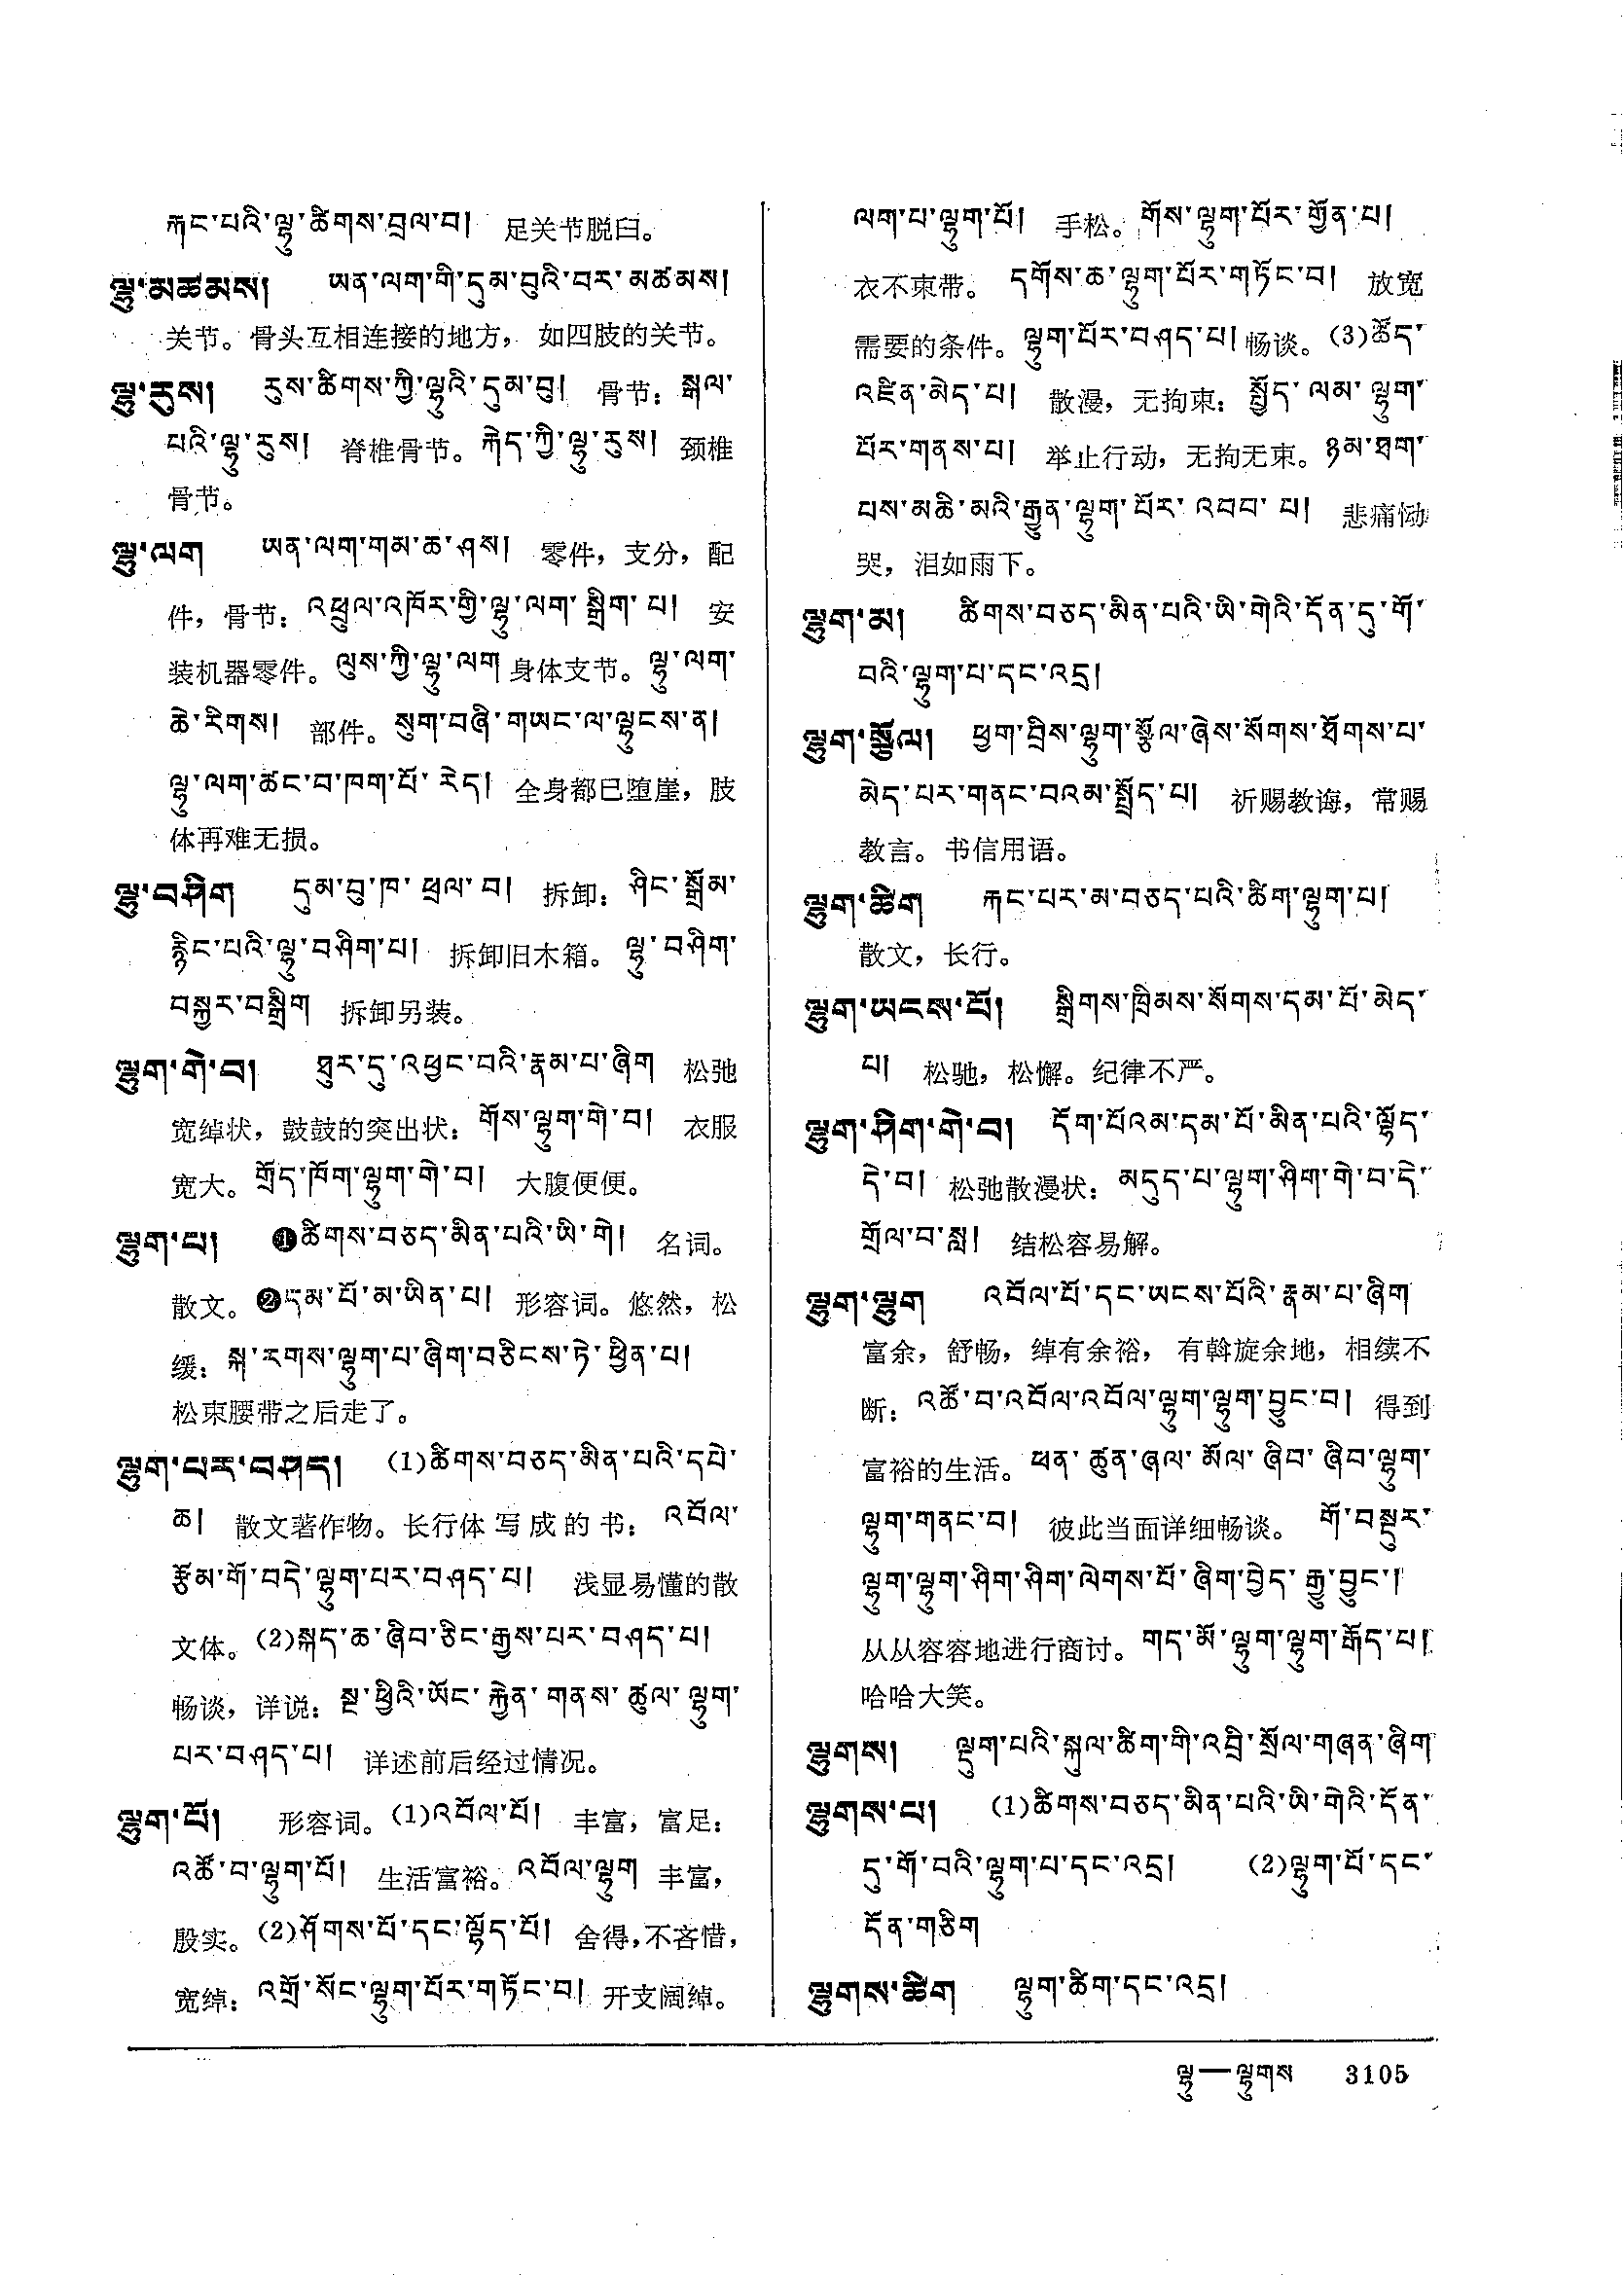 རྐང་པའི་ལྷུ་ཚིགས་བྲལ་བ། 足关节脱臼。
ལྷུ་མཚམས། ཡན་ལག་གི་དུམ་བུའི་བར་མཚམས།
关节。骨头互相连接的地方，如四肢的关节。
ལྷུ་རུས། རུས་ཚིགས་ཀྱི་ལྷུའི་དུམ་བུ། 骨节：སྒལ་
པའི་ལྷུ་རུས། 脊椎骨节。རྐེད་ཀྱི་ལྷུ་རུས། 颈椎
骨节。
ལྷུ་ལག ཡན་ལག་གམ་ཆ་ཤས། 零件，支分，配
件，骨节：འཕྲུལ་འཁོར་གྱི་ལྷུ་ལག་སྒྲིག་པ། 安
装机器零件。ལུས་ཀྱི་ལྷུ་ལག 身体支节。ལྷུ་ལག་
ཆེ་རིགས། 部件。སུག་བཞི་གཡང་ལ་ལྷུངས་ན།
ལྷུ་ལག་ཚང་བ་ཁག་པོ་རེད། 全身都已堕崖，肢
体再难无损。
ལྷུ་བཤིག དུམ་བུ་ཁ་ཕྲལ་བ། 拆卸：ཤིང་སྒྲོམ་
རྙིང་པའི་ལྷུ་བཤིག་པ། 拆卸旧木箱。ལྷུ་བཤིག་
བསྐྱར་བསྒྲིག 拆卸另装。
ལྷུག་གེ་བ། ཐུར་དུ་འཕྱང་བའི་རྣམ་པ་ཞིག 松弛
宽绰状，鼓鼓的突出状：གོས་ལྷུག་གེ་བ། 衣服
宽大。གྲོད་ཁོག་ལྷུག་གེ་བ། 大腹便便。
ལྷུག་པ། ❶ཚིགས་བཅད་མིན་པའི་ཡི་གེ། 名词。
散文。❷དམ་པོ་མ་ཡིན་པ། 形容词。悠然，松
缓：སྐ་རགས་ལྷུག་པ་ཞིག་བཅིངས་ཏེ་ཕྱིན་པ།
松束腰带之后走了。
ལྷུག་པར་བཤད། (1)ཚིགས་བཅད་མིན་པའི་དཔེ་
ཆ། 散文著作物。长行体写成的书：འབོལ་
རྩོམ་གོ་བདེ་ལྷུག་པར་བཤད་པ། 浅显易懂的散
文体。(2)སྐད་ཆ་ཞིབ་ཅིང་རྒྱས་པར་བཤད་པ།
畅谈，详说：སྔ་ཕྱིའི་ཡོང་རྐྱེན་གནས་ཚུལ་ལྷུག་
པར་བཤད་པ། 详述前后经过情况。
ལྷུག་པོ། 形容词。(1)འབོལ་པོ། 丰富，富足：
འཚོ་བ་ལྷུག་པོ། 生活富裕。འབོལ་ལྷུག 丰富，
殷实。(2)ཤོགས་པོ་དང་ལྷོད་པོ། 舍得，不吝惜，
宽绰：འགྲོ་སོང་ལྷུག་པོར་གཏོང་བ། 开支阔绰。
ལག་པ་ལྷུག་པོ། 手松。གོས་ལྷུག་པོར་གྱོན་པ།
衣不束带。དགོས་ཆ་ལྷུག་པོར་གཏོང་བ། 放宽
需要的条件。ལྷུག་པོར་བཤད་པ། 畅谈。(3)ཚོད་
འཛིན་མེད་པ། 散漫，无拘束：སྤྱོད་ལམ་ལྷུག་
པོར་གནས་པ། 举止行动，无拘无束。ཉམ་ཐག་
པས་མཆི་མའི་རྒྱུན་ལྷུག་པོར་འབབ་པ། 悲痛恸
哭，泪如雨下。
ལྷུག་མ། ཚིགས་བཅད་མིན་པའི་ཡི་གེའི་དོན་དུ་གོ་
བའི་ལྷུག་པ་དང་འདྲ།
ལྷུག་སྩོལ། ཕྱག་བྲིས་ལྷུག་སྩོལ་ཞེས་སོགས་ཐོགས་པ་
མེད་པར་གནང་བའམ་སྤྲོད་པ། 祈赐教诲，常赐
教言。书信用语。
ལྷུག་ཚིག རྐང་པར་མ་བཅད་པའི་ཚིག་ལྷུག་པ།
散文，长行。
ལྷུག་ཡངས་པོ། སྒྲིགས་ཁྲིམས་སོགས་དམ་པོ་མེད་
པ། 松驰，松懈。纪律不严。
ལྷུག་ཤིག་གེ་བ། དོག་པོའམ་དམ་པོ་མིན་པའི་ལྷོད་
དེ་བ། 松弛散漫状：མདུད་པ་ལྷུག་ཤིག་གེ་བ་དེ་
གྲོལ་བ་སླ། 结松容易解。
ལྷུག་ལྷུག འབོལ་པོ་དང་ཡངས་པོའི་རྣམ་པ་ཞིག
富余，舒畅，绰有余裕，有斡旋余地，相续不
断：འཚོ་བ་འབོལ་འབོལ་ལྷུག་ལྷུག་བྱུང་བ། 得到
富裕的生活。ཕན་ཚུན་ཞལ་མོལ་ཞིབ་ཞིབ་ལྷུག་
ལྷུག་གནང་བ། 彼此当面详细畅谈。གོ་བསྡུར་
ལྷུག་ལྷུག་ཤིག་ཤིག་ལེགས་པོ་ཞིག་བྱེད་རྒྱུ་བྱུང་།
从从容容地进行商讨。གད་མོ་ལྷུག་ལྷུག་རྒོད་པ།
哈哈大笑。
ལྷུགས། ལྡུག་པའི་སྐུལ་ཚིག་གི་འབྲི་སྲོལ་གཞན་ཞིག
ལྷུགས་པ། (1)ཚིགས་བཅད་མིན་པའི་ཡི་གེའི་དོན་
དུ་གོ་བའི་ལྷུག་པ་དང་འདྲ། (2)ལྷུག་པོ་དང་
དོན་གཅིག
ལྷུགས་ཚིག ལྷུག་ཚིག་དང་འདྲ།
ལྷུ—ལྷུགས 3105